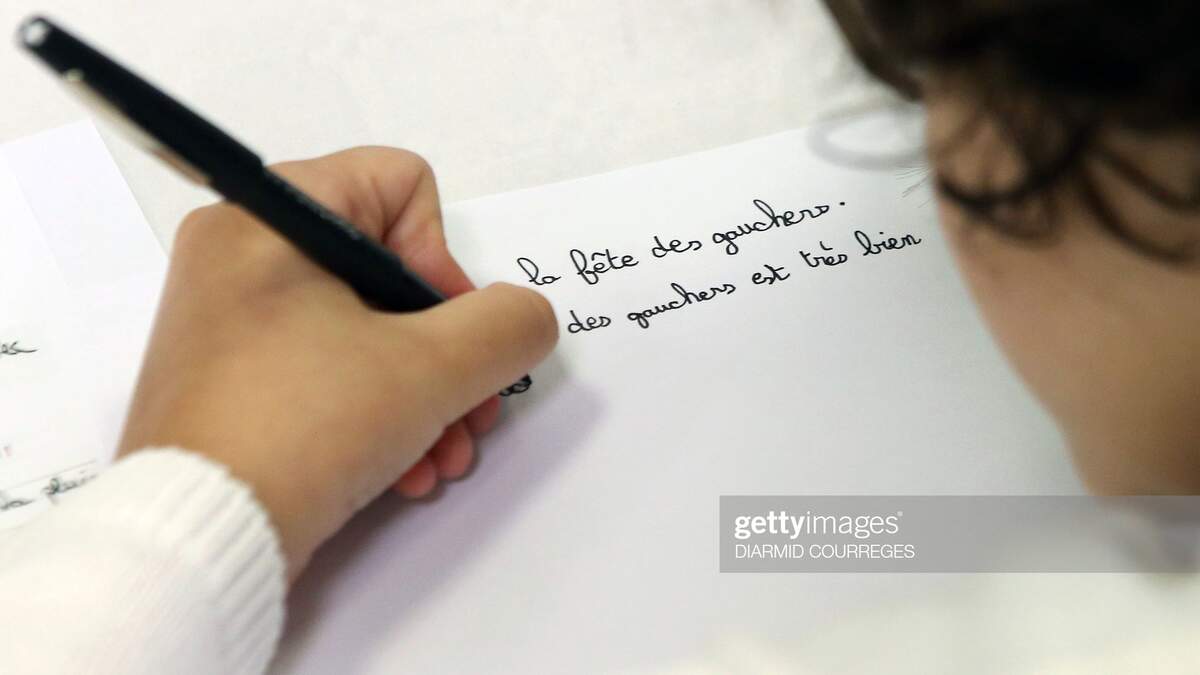 la fête des gauchers.
des gauchers est très bien
la
gettyimages®
DIARMID COURREGES